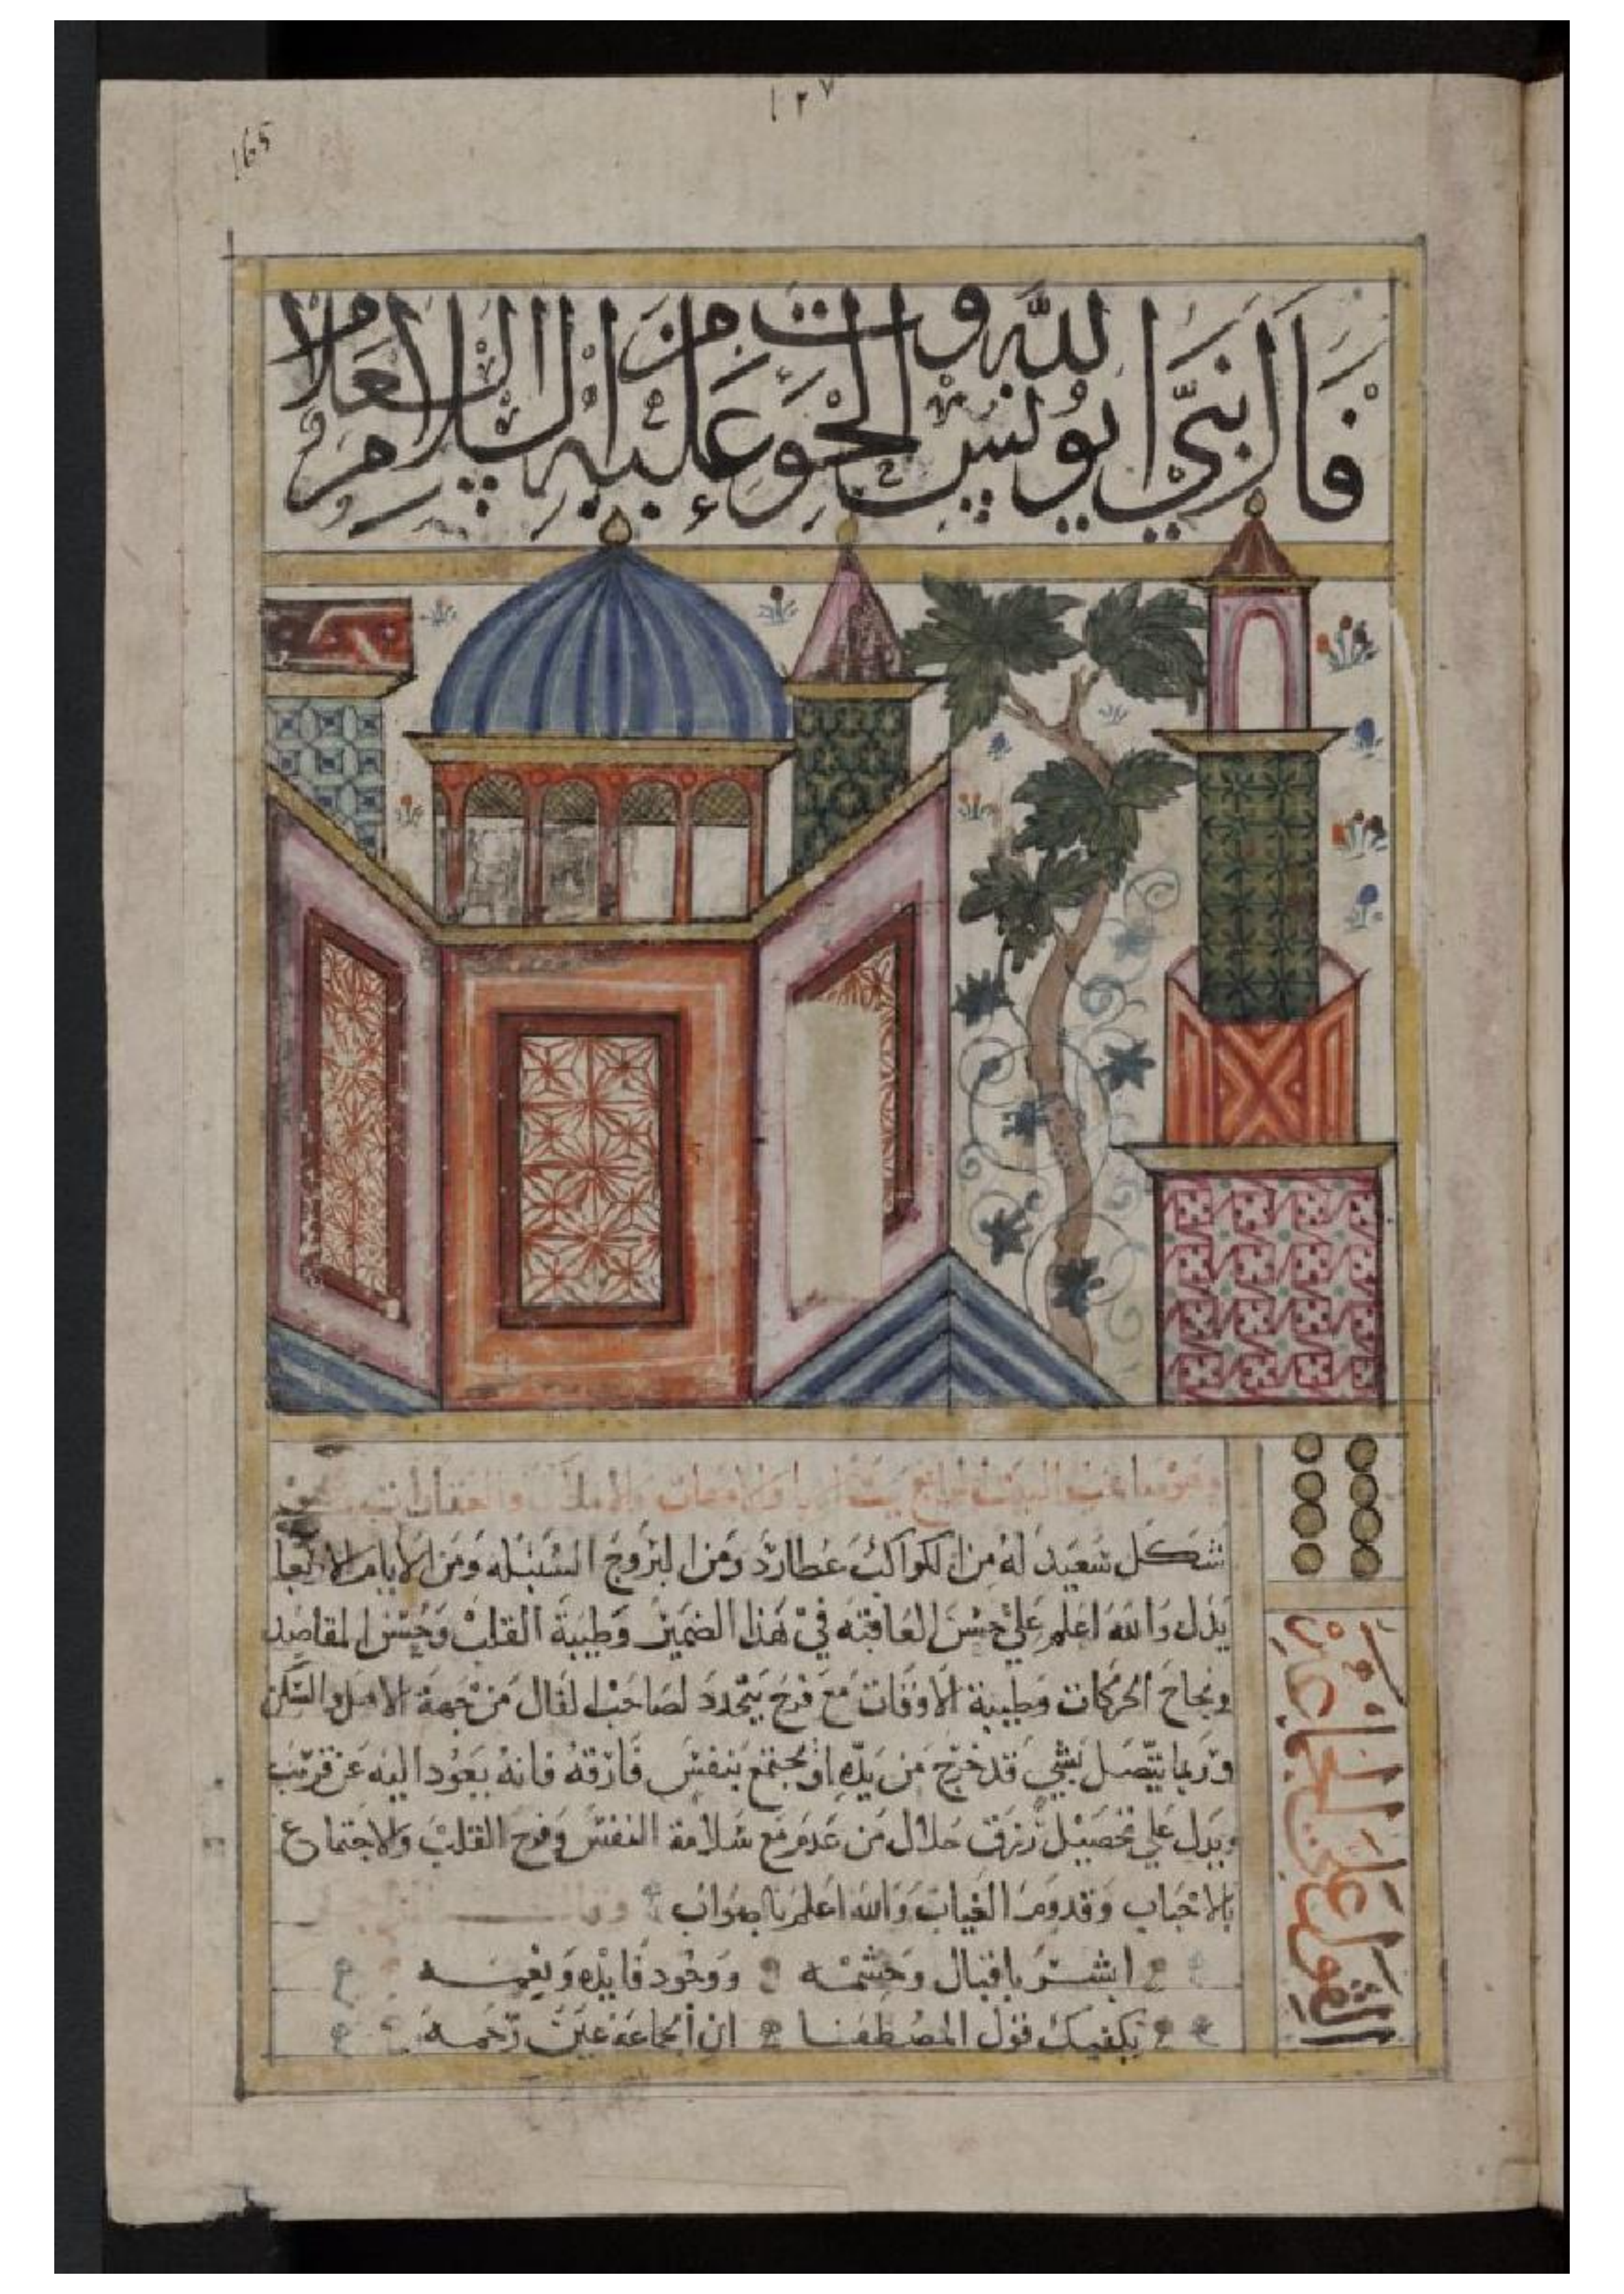 ١٢٧
165
فال نبي الله يونس الحوت عليه السلام
شكل سعيد له من الكواكب عطارد ومن البروج السنبله ومن الايام الاربعا
يدل والله اعلم علي حسن العاقبه في هذا الضمير وطيبة القلب وحسن المقاصد
ونجاح الحركات وطيبة الاوقات مع فرح يتجدد لصاحب الفال من جهة الاهل والسكن
وربما يتصل بشي قد خرج من يده او يجتمع بنفس فارقه فانه يعود اليه عن قريب
ويدل علي تحصيل رزق حلال من عدم مع سلامة النفس وفرح القلب والاجتماع
بالاحباب وقدوم الغياب والله اعلم بالصواب
ابشر باقبال وحشمه ووجود فايده ونعمه
يكفيك قول المصطفا ان الجماعة عين رحمه
القول علي الجماعه